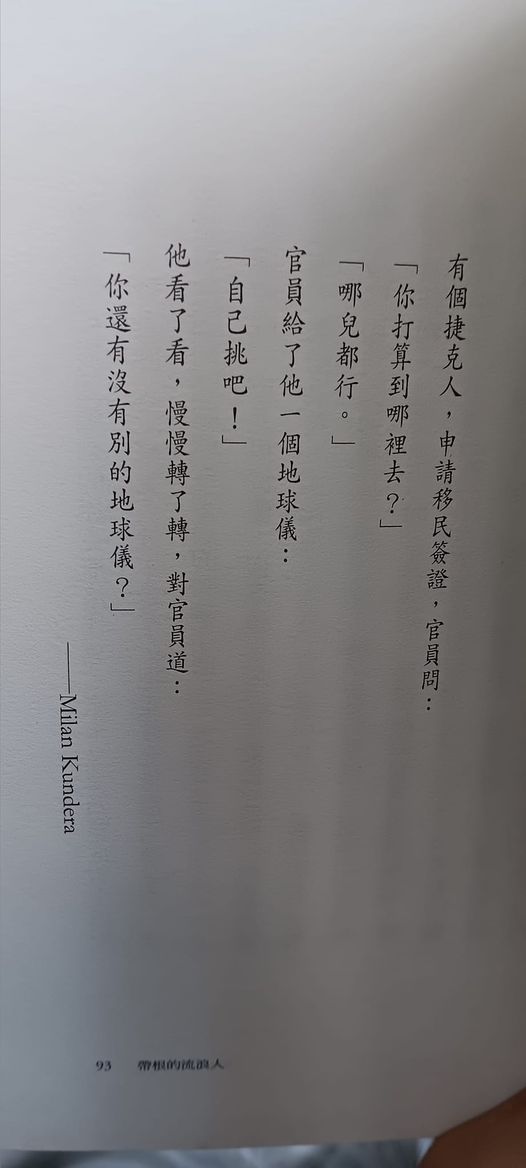 有個捷克人，申請移民簽證，官員問：
「你打算到哪裡去？」
「哪兒都行。」
官員給了他一個地球儀：
「自己挑吧！」
他看了看，慢慢轉了轉，對官員道：
「你還有沒有別的地球儀？」
——Milan Kundera
93 帶根的流浪人